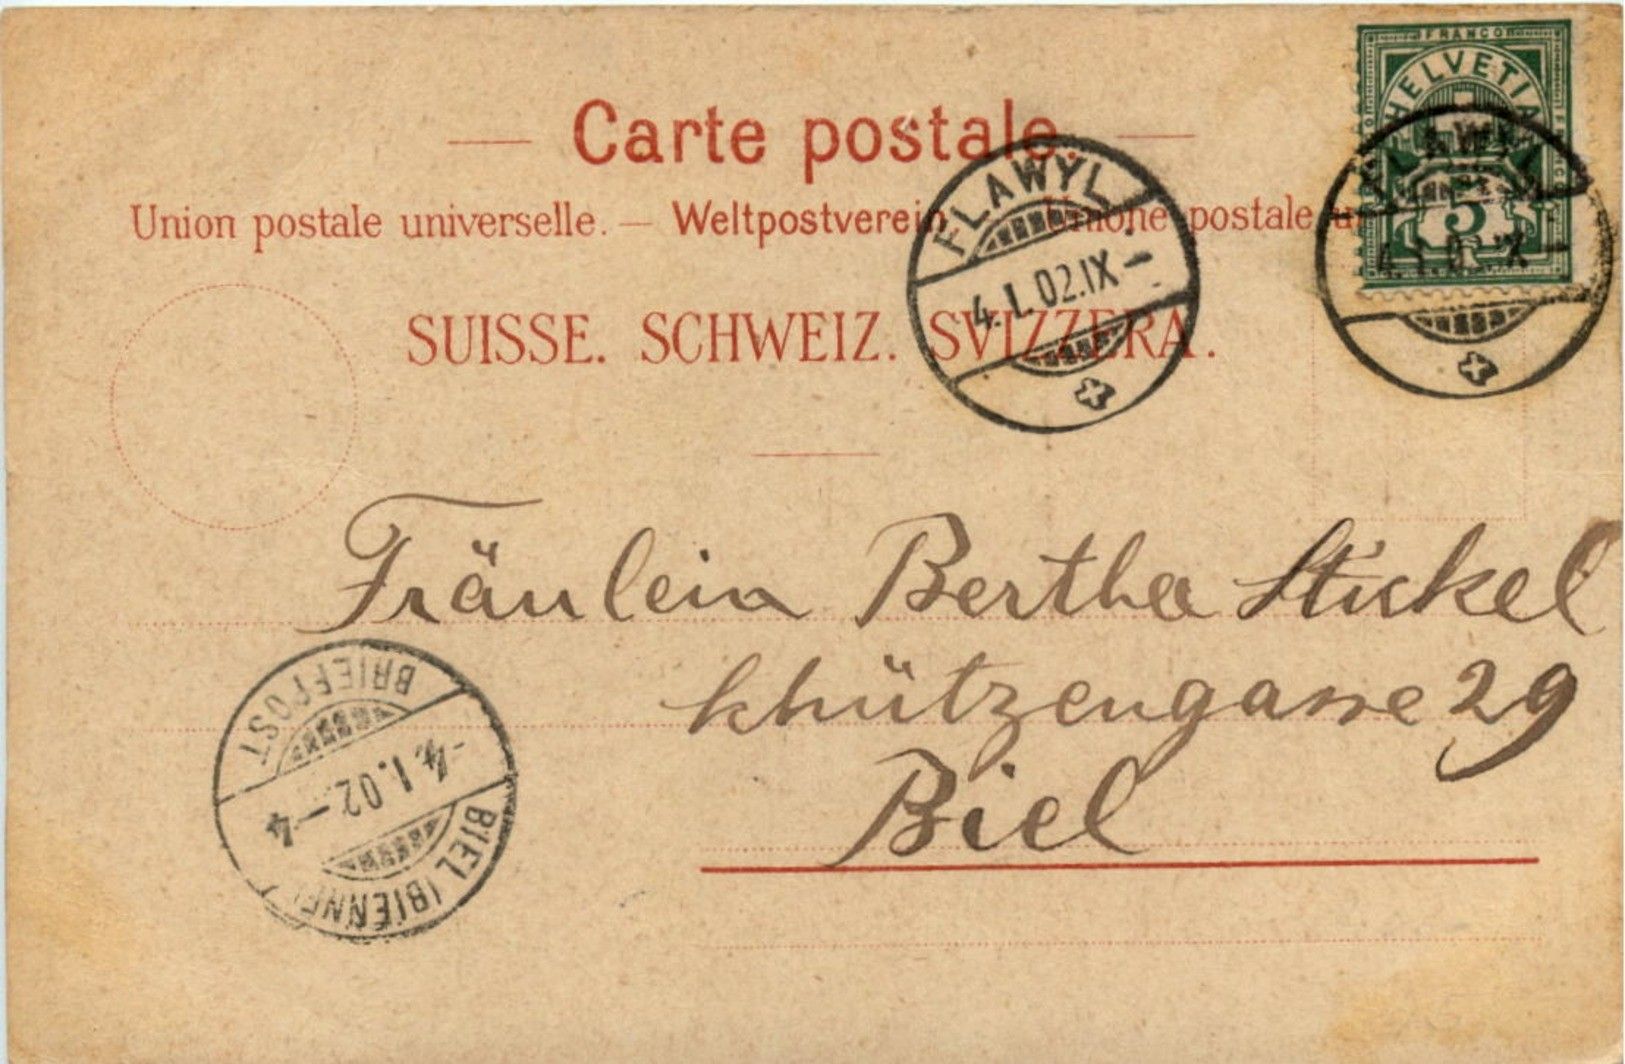 FRANCO
HELVETIA
5
— Carte postale. —
Union postale universelle. — Weltpostverein. Unione postale u
SUISSE. SCHWEIZ. SVIZZERA.
FLAWYL
4.I.02.IX—
FLAWYL
Fräulein Bertha Stickel
Schützengasse 29
Biel
BRIEFPOST
-4.I.02.–4
BIEL (BIENNE)